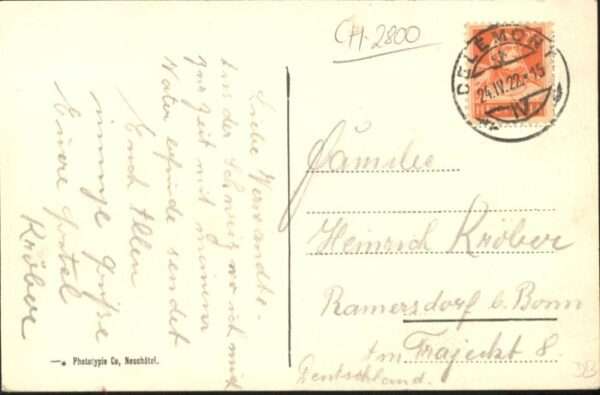 CH-2800
DELÉMONT
24.IV.22.-15
IV
Liebe Verwandte.
Aus der Schweiz wo ich mich
zur Zeit mit meinem
Vater befinde sendet
Euch Allen
innige Grüße
Eure
Kröber
Familie
Heinrich Kröber
Ramersdorf b. Bonn
Am Trajeckt 8.
Deutschland.
Phototypie Co, Neuchâtel.